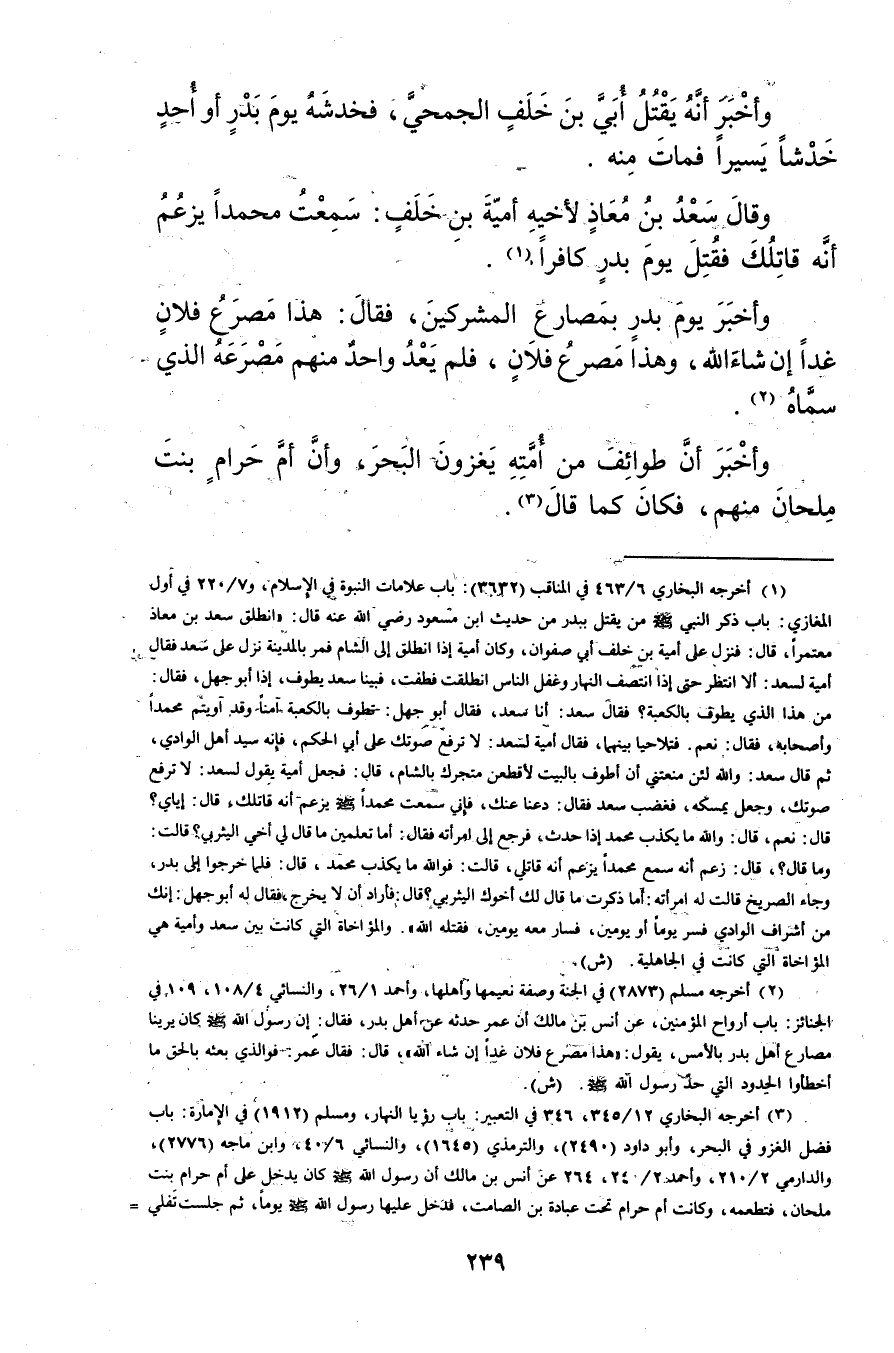 وأخْبَرَ أنَّهُ يَقْتُلُ أُبَيَّ بنَ خَلَفٍ الجمحيَّ، فخدشَهُ يومَ بَدْرٍ أو أُحدٍ
خَدْشاً يَسيراً فماتَ مِنه .
وقالَ سَعْدُ بنُ مُعَاذٍ لأخيهِ أميّةَ بنِ خَلَفٍ: سَمِعْتُ محمداً يزعُمُ
أنَّه قاتِلُكَ فقُتِلَ يومَ بدرٍ كافراً (١) .
وأخبَرَ يومَ بدرٍ بمَصارعِ المشركينَ، فقالَ: هذا مَصرَعُ فلانٍ
غداً إن شاءَ الله، وهذا مَصرعُ فلانٍ، فلم يَعْدُ واحدٌ منهم مَصْرَعَهُ الذي
سمَّاهُ (٢) .
وأخْبَرَ أنَّ طوائِفَ من أُمَّتِهِ يَغزونَ البَحرَ، وأنَّ أمَّ حَرامٍ بنتَ
مِلحانَ منهم، فكانَ كما قالَ(٣) .
(١) أخرجه البخاري ٤٦٣/٦ في المناقب (٣٦٣٢): باب علامات النبوة في الإسلام، و٢٢٠/٧ في أول
المغازي: باب ذكر النبي ﷺ من يقتل ببدر من حديث ابن مسعود رضي الله عنه قال: «انطلق سعد بن معاذ
معتمراً، قال: فنزل على أمية بن خلف أبي صفوان، وكان أمية إذا انطلق إلى الشام فمر بالمدينة نزل على سَعد فقال
أمية لسعد: ألا انتظر حتى إذا انتصف النهار وغفل الناس انطلقت فطفت، فبينا سعد يطوف، إذا أبو جهل، فقال:
من هذا الذي يطوف بالكعبة؟ فقال سعد: أنا سعد، فقال أبو جهل: تطوف بالكعبة آمناً وقد آويتم محمداً
وأصحابه، فقال: نعم. فتلاحيا بينهما، فقال أمية لسعد: لا ترفع صوتك على أبي الحكم، فإنه سيد أهل الوادي،
ثم قال سعد: والله لئن منعتني أن أطوف بالبيت لأقطعن متجرك بالشام، قال: فجعل أمية يقول لسعد: لا ترفع
صوتك، وجعل يمسكه، فغضب سعد فقال: دعنا عنك، فإني سمعت محمداً ﷺ يزعم أنه قاتلك، قال: إياي؟
قال: نعم، قال: والله ما يكذب محمد إذا حدث، فرجع إلى امرأته فقال: أما تعلمين ما قال لي أخي اليثربي؟ قالت:
وما قال؟، قال: زعم أنه سمع محمداً يزعم أنه قاتلي، قالت: فوالله ما يكذب محمد، قال: فلما خرجوا إلى بدر،
وجاء الصريخ قالت له امرأته: أما ذكرت ما قال لك أخوك اليثربي؟ قال: فأراد أن لا يخرج، فقال له أبو جهل: إنك
من أشراف الوادي فسر يوماً أو يومين، فسار معه يومين، فقتله الله». والمؤاخاة التي كانت بين سعد وأمية هي
المؤاخاة التي كانت في الجاهلية. (ش).
(٢) أخرجه مسلم (٢٨٧٣) في الجنة وصفة نعيمها وأهلها، وأحمد ٢٦/١، والنسائي ١٠٨/٤، ١٠٩ في
الجنائز: باب أرواح المؤمنين، عن أنس بن مالك أن عمر حدثه عن أهل بدر، فقال: إن رسول الله ﷺ كان يرينا
مصارع أهل بدر بالأمس، يقول: «هذا مصرع فلان غداً إن شاء الله»، قال: فقال عمر: فوالذي بعثه بالحق ما
أخطأوا الحدود التي حدّ رسول الله ﷺ . (ش).
(٣) أخرجه البخاري ٣٤٥/١٢، ٣٤٦ في التعبير: باب رؤيا النهار، ومسلم (١٩١٢) في الإمارة: باب
فضل الغزو في البحر، وأبو داود (٢٤٩٠)، والترمذي (١٦٤٥)، والنسائي ٤٠/٦، وابن ماجه (٢٧٧٦)،
والدارمي ٢١٠/٢، وأحمد ٢٤٠/٢، ٢٦٤ عن أنس بن مالك أن رسول الله ﷺ كان يدخل على أم حرام بنت
ملحان، فتطعمه، وكانت أم حرام تحت عبادة بن الصامت، فدخل عليها رسول الله ﷺ يوماً، ثم جلست تَفلي =
٢٣٩